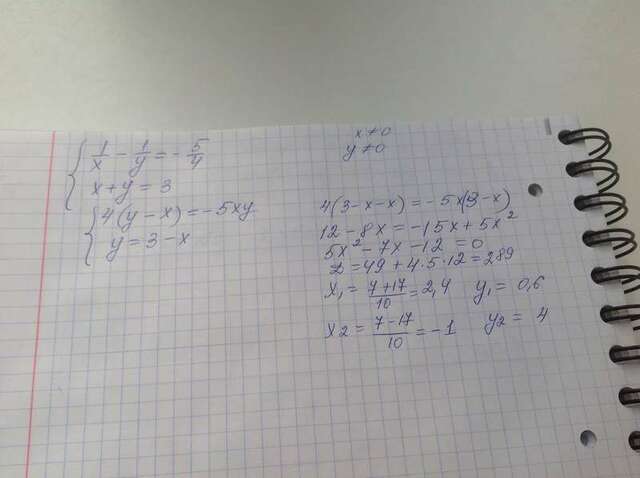 1/x - 1/y = - 5/4
x + y = 3
4(y - x) = - 5xy
y = 3 - x
x ≠ 0
y ≠ 0
4(3 - x - x) = - 5x(3 - x)
12 - 8x = - 15x + 5x²
5x² - 7x - 12 = 0
D = 49 + 4·5·12 = 289
x₁ = (7+17)/10 = 2,4 y₁ = 0,6
x2 = (7-17)/10 = - 1 y₂ = 4